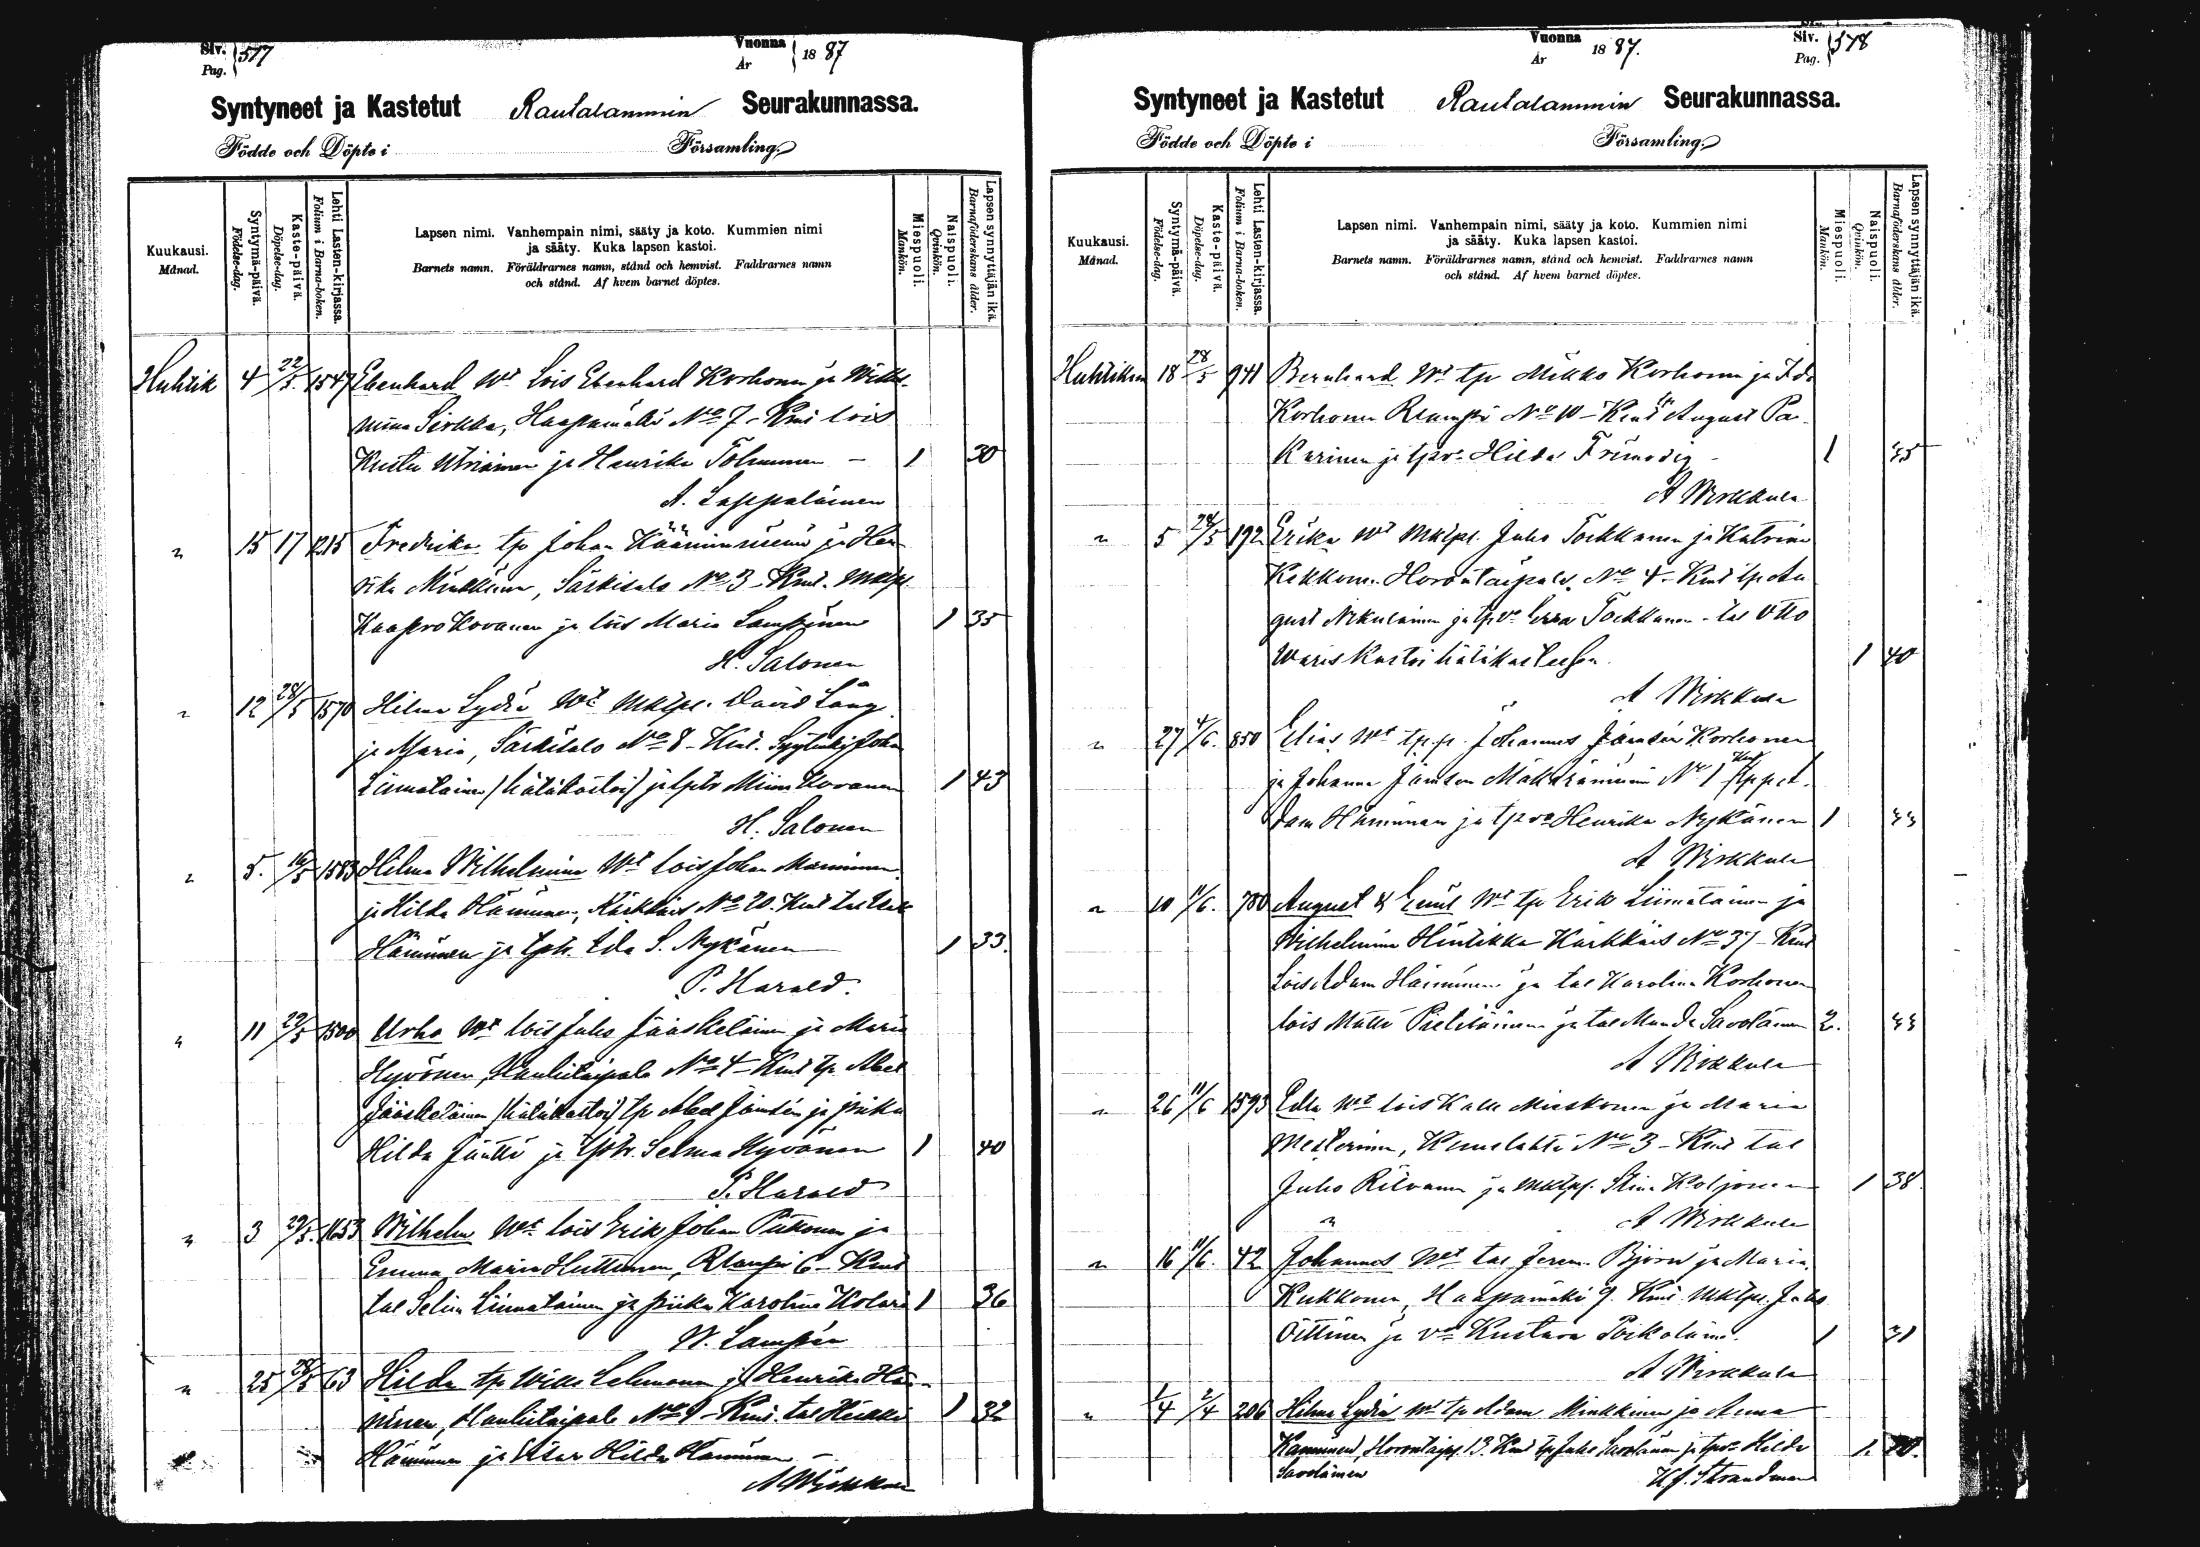 Siv. Pag. 517
Vuonna År 1887
Syntyneet ja Kastetut Rautalammin Seurakunnassa.
Födde och Döpte i Församling.
Kuukausi. Månad.
Syntymä-päivä. Födelse-dag.
Kaste-päivä. Döpelse-dag.
Lehti Lasten-kirjassa. Folium i Barna-boken.
Lapsen nimi. Vanhempain nimi, sääty ja koto. Kummien nimi
ja sääty. Kuka lapsen kastoi.
Barnets namn. Föräldrarnes namn, stånd och hemvist. Faddrarnes namn
och stånd. Af hvem barnet döptes.
Miespuoli. Mankön.
Naispuoli. Qvinkön.
Lapsen synnyttäjän ikä. Barnaföderskans ålder.
Huhtik 4 22/5 1547 Ebenhard Wt Lois Ebenhard Korhonen ja Wilhel
miina Sirkka, Haapamäki No 7 - Kmit lois
Kustu ja Henrika Tolvanen - 1 30
A. Lappalainen
15 17 1215 Fredrika tp Johan Kääriäinen ja Hen
rika Minkkinen, Särkisalo No 3 - Kmit. Mktps.
Kaapro Kovanen ja lois Maria Lampinen 1 35
H. Salonen
12 28/5 1570 Hilma Lydia Wt Mktps. David Lång
ja Maria, Särkisalo No 8 - Kmit. Johan
Liimatainen (hätäkastoi) ja tptr Miina Kovanen 1 43
H. Salonen
5. 16/5 1583 Hilma Wilhelmiina Wt lois Johan Manninen
ja Hilda Hänninen, Kärkkäis No 20. Kmit tal
Hänninen ja tptr. Eda S. Nykänen 1 33.
P. Harald.
11 29/5 1500 Urho Wt lois Juho Jääskeläinen ja Maria
Hyvönen, Hanhitaipale No 4 - Kmit tp. Abel
Jääskeläinen (hätäkastoi) tp Abel Jämsén ja piika
Hilda Jäntti ja tptr. Selma Hyvönen 1 40
P. Harald
3 29/5. 1653 Wilhelm Wt. lois Erik Johan Piitonen ja
Emma Maria Huttunen, Rlampi 6 - Kmit
tal Selim Liimatainen ja piika Karoliina Kolari 1 36
W. Lampén
25 28/5 63 Hilda tp Wille Lehmonen ja Henrika Hän-
ninen, Hanhitaipale No 9 - Kmit. tal Heikki 1 32
Hänninen ja Hilda Hänninen -
A Wirkkula
Siv. Pag. 518
Vuonna År 1887.
Syntyneet ja Kastetut Rautalammin Seurakunnassa.
Födde och Döpte i Församling.
Kuukausi. Månad.
Syntymä-päivä. Födelse-dag.
Kaste-päivä. Döpelse-dag.
Lehti Lasten-kirjassa. Folium i Barna-boken.
Lapsen nimi. Vanhempain nimi, sääty ja koto. Kummien nimi
ja sääty. Kuka lapsen kastoi.
Barnets namn. Föräldrarnes namn, stånd och hemvist. Faddrarnes namn
och stånd. Af hvem barnet döptes.
Miespuoli. Mankön.
Naispuoli. Qvinkön.
Lapsen synnyttäjän ikä. Barnaföderskans ålder.
Huhtikuu 18 28/5 941 Bernhard Wt tp Mikko Korhonen ja Ida
Korhonen Rlampi No 10 - Kmit tp August Pa
karinen ja tpv: Hilda Frimodig - 1
A Wirkkula
5 28/5 192 Erika Wt Mktps. Juho Tockkanen ja Katrina
Kekkonen Horontaipale No 4 - Kmit tp Au
gust Nykulainen ja tpvo Tockkanen - tal Otto
Waris Kastoi hätäkasteessa. 1 40
A Wirkkula
27 4/6. 850 Elias Wt tp. p. Johannes Jämsén Korhonen
ja Johanna Jämsen No 1 Kmit
dam Hänninen ja tpvo Henrika Nykänen 1
A Wirkkula
10 11/6. 780 August & Emil Wt tp Erik Liimatainen ja
Wilhelmina Hintikka Kärkkäis No 37 - Kmit
Lois Adam Hänninen ja tal Karolina Korhonen
lois Matti Pietiläinen ja tal Manda Savolainen 2.
A Wirkkula
26 11/6 1593 Edla Wt lois Kalle Mieskonen ja Maria
Westerinen, No 3 - Kmit tal
Juho ja Mktps. Stina Koljonen 1 38.
A Wirkkula
16 11/6. 42 Johannes Wt tal Jerem. Björn ja Maria
Kukkonen, Haapamäki 9. Kmit Mktps. Juho
Oittinen ja vo Kustava Poikolainen. 1 31
A Wirkkula
1/4 2/4 206 Hilma Lydia Wt tp Adam Minkkinen ja Anna
Horontaip. 13. Kmit tp Juho Savolainen ja tpvo Hilda 1.
Savolainen
K. J. Strandman